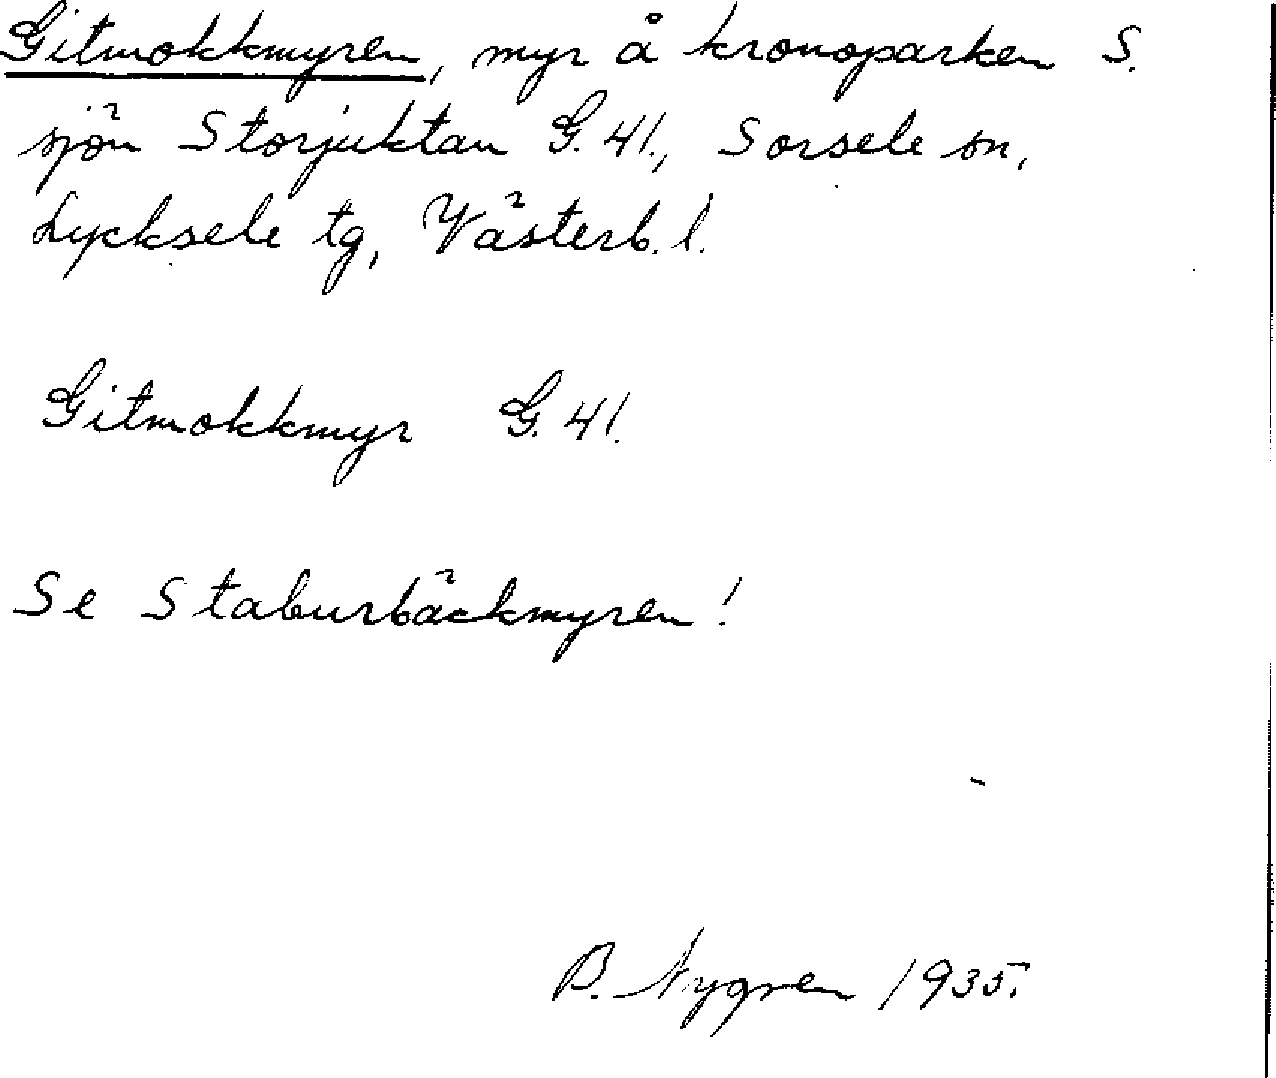 Gitmokkmyren, myr å kronoparken S.
sjön Storjuktan G. 41., Sorsele sn,
Lycksele tg, Västerb. l.
Gitmokkmyr G. 41.
Se Staburbäckmyren!
B. Nygren 1935.